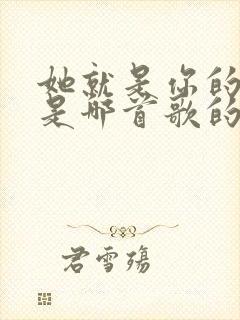 她就是你的
是那首歌的
君雪殇